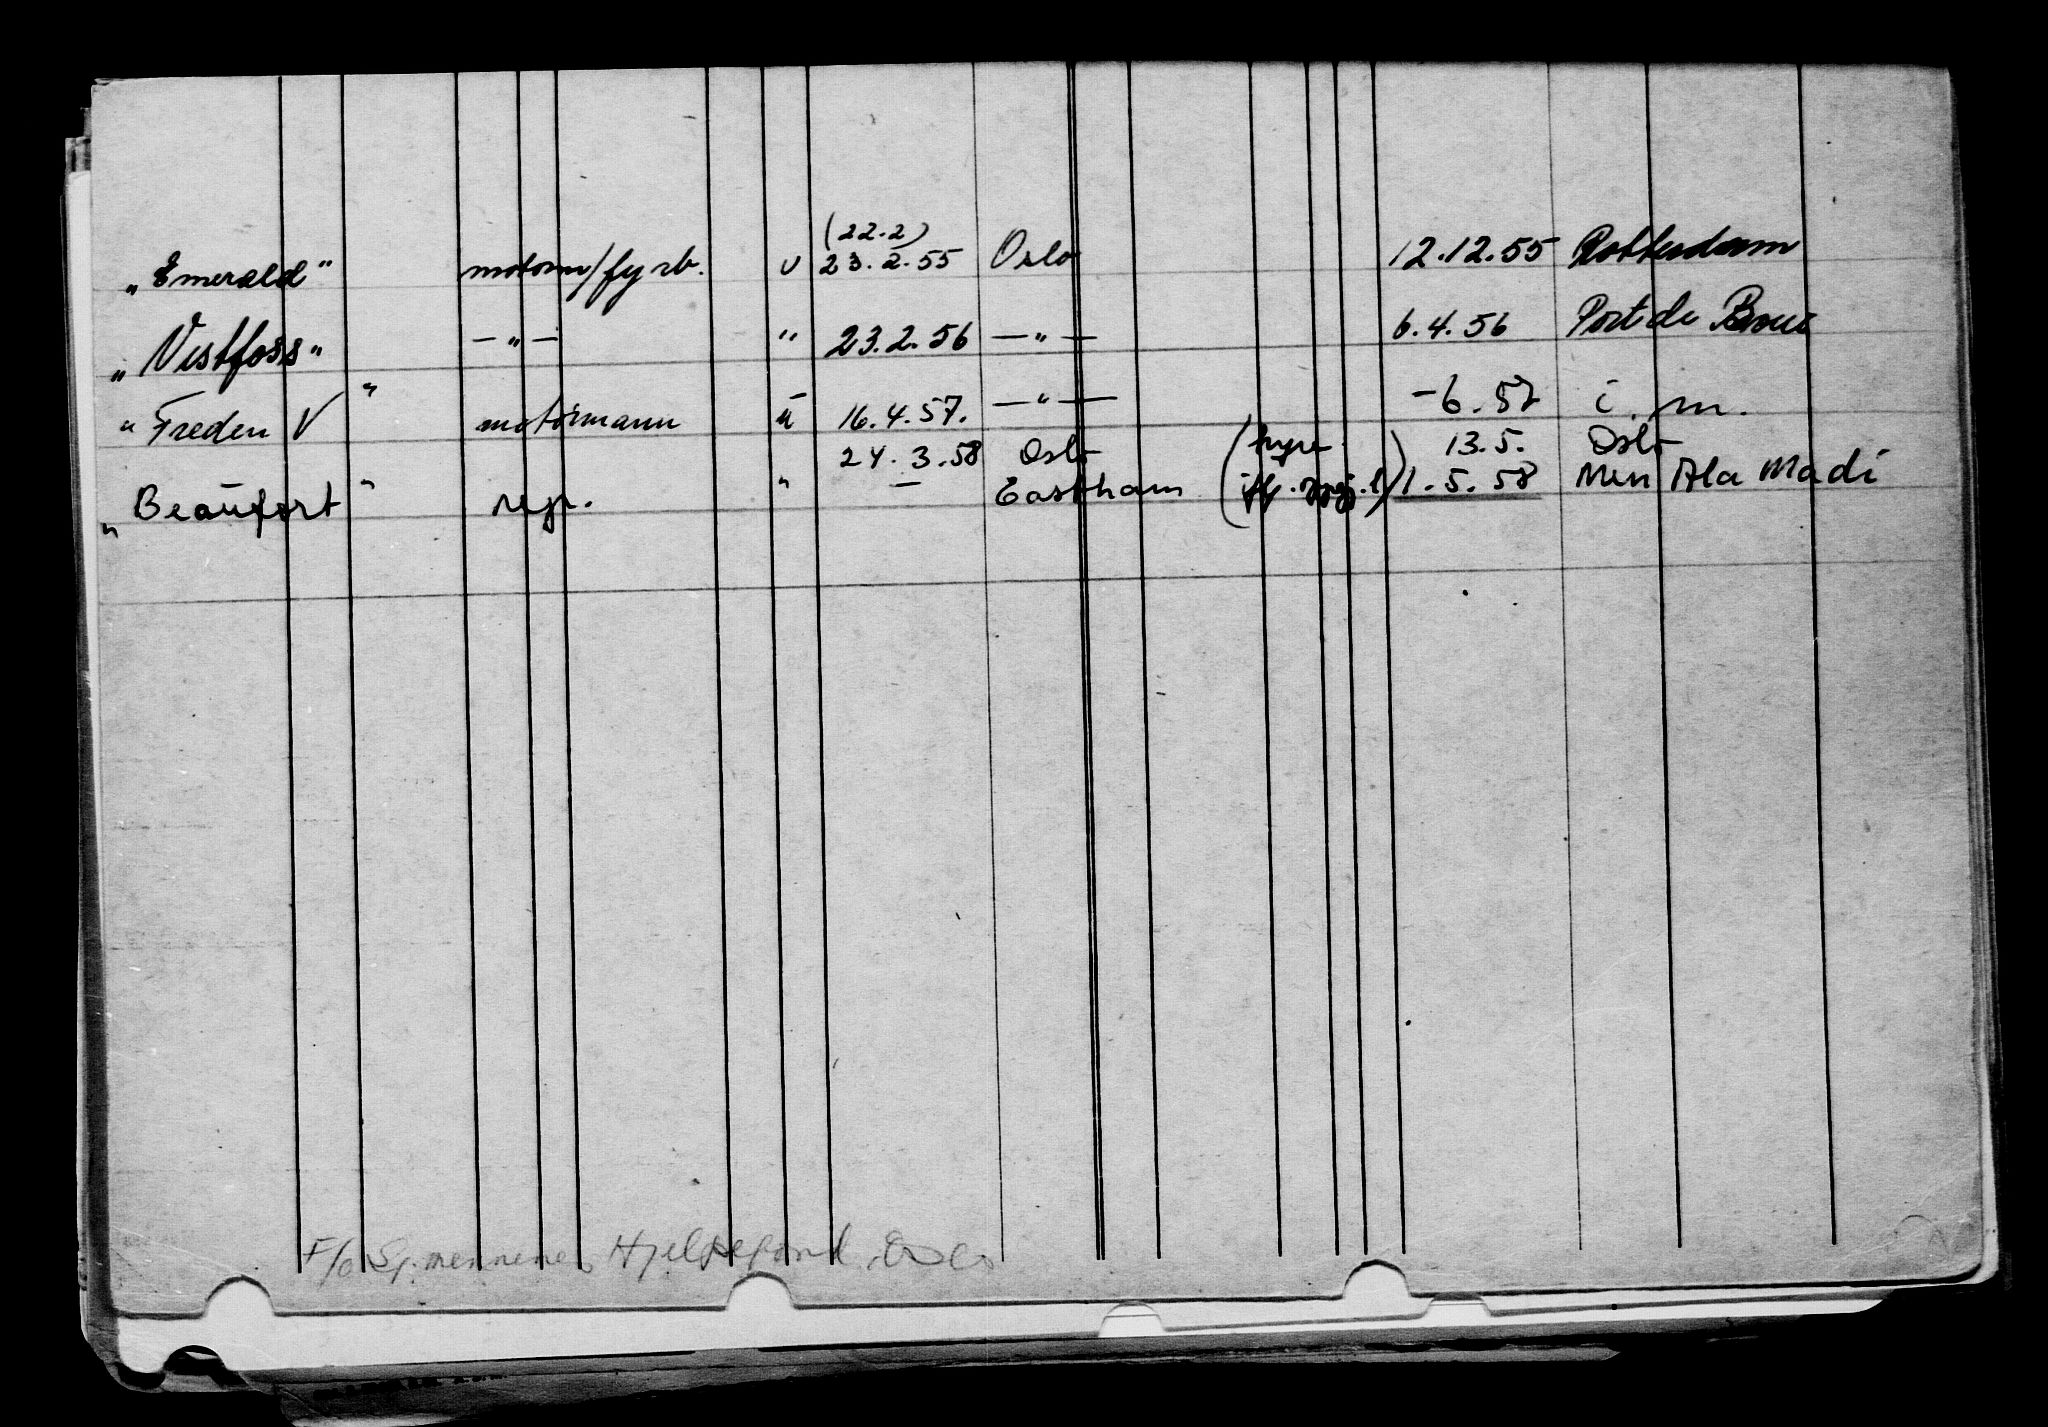 (22.2)
„Emerald" motorm/fyrb. u 23.2.55 Oslo 12.12.55 Rotterdam
„Vestfoss" — „ — " 23.2.56 — „ — 6.4.56 Port de Bouc
„Freden V" motormann u 16.4.57. — „ — -6.57 i. m.
24.3.58 Oslo (hyre 13.5. Oslo
„Beaufort" repr. " — Eastham 1.5.58 Men Ala Madi
F/o Sj.mennenes Hjelpefond, Oslo